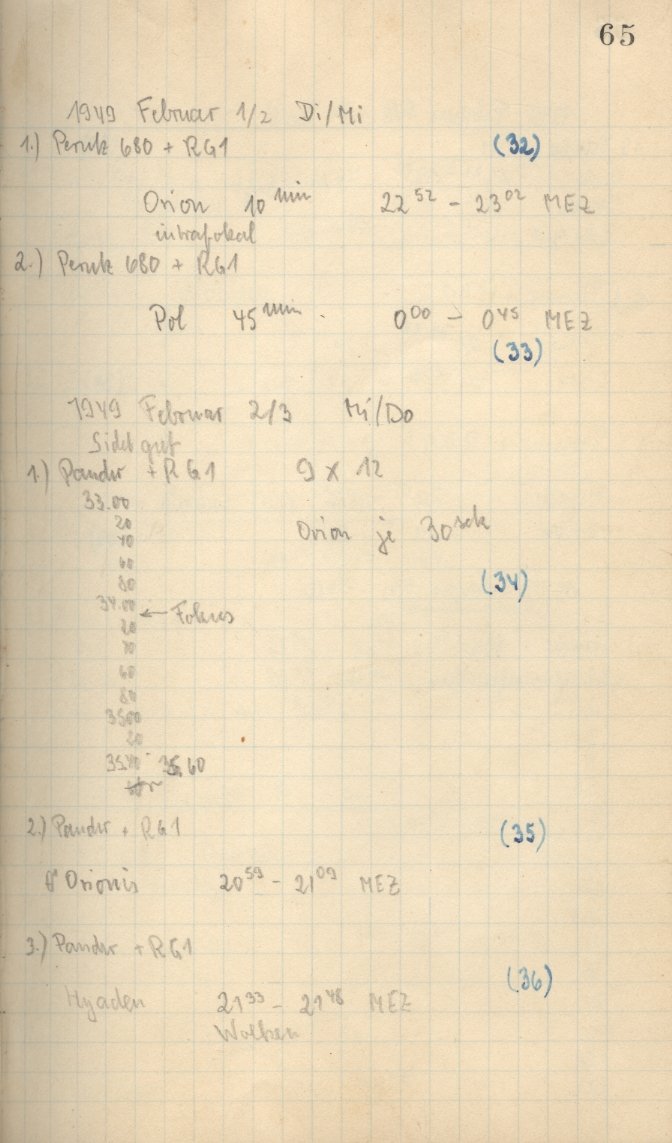 65
1949 Februar 1/2 Di/Mi
1.) Perutz 680 + RG1 (32)
Orion 10 min 22 52 - 23 02 MEZ
intrafokal
2.) Perutz 680 + RG1
Pol 45 min 0 00 - 0 45 MEZ
(33)
1949 Februar 2/3 Mi/Do
Sicht gut
1.) Panchr + RG1 9 x 12
33.00
20
40 Orion je 30 sek
60
80 (34)
34.00
20 ← Fokus
40
60
80
35.00
20
35.40 35.60
2.) Panchr + RG1 (35)
Orionis 20 59 - 21 09 MEZ
3.) Panchr + RG1
(36)
Hyaden 21 33 - 21 48 MEZ
Wolken